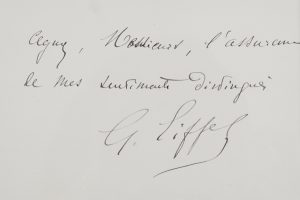 Agréez, Messieurs, l'assurance
de mes sentiments distingués
G. Eiffel